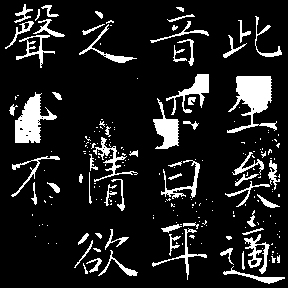 此生矣適
音四曰耳
之情欲
聲心不